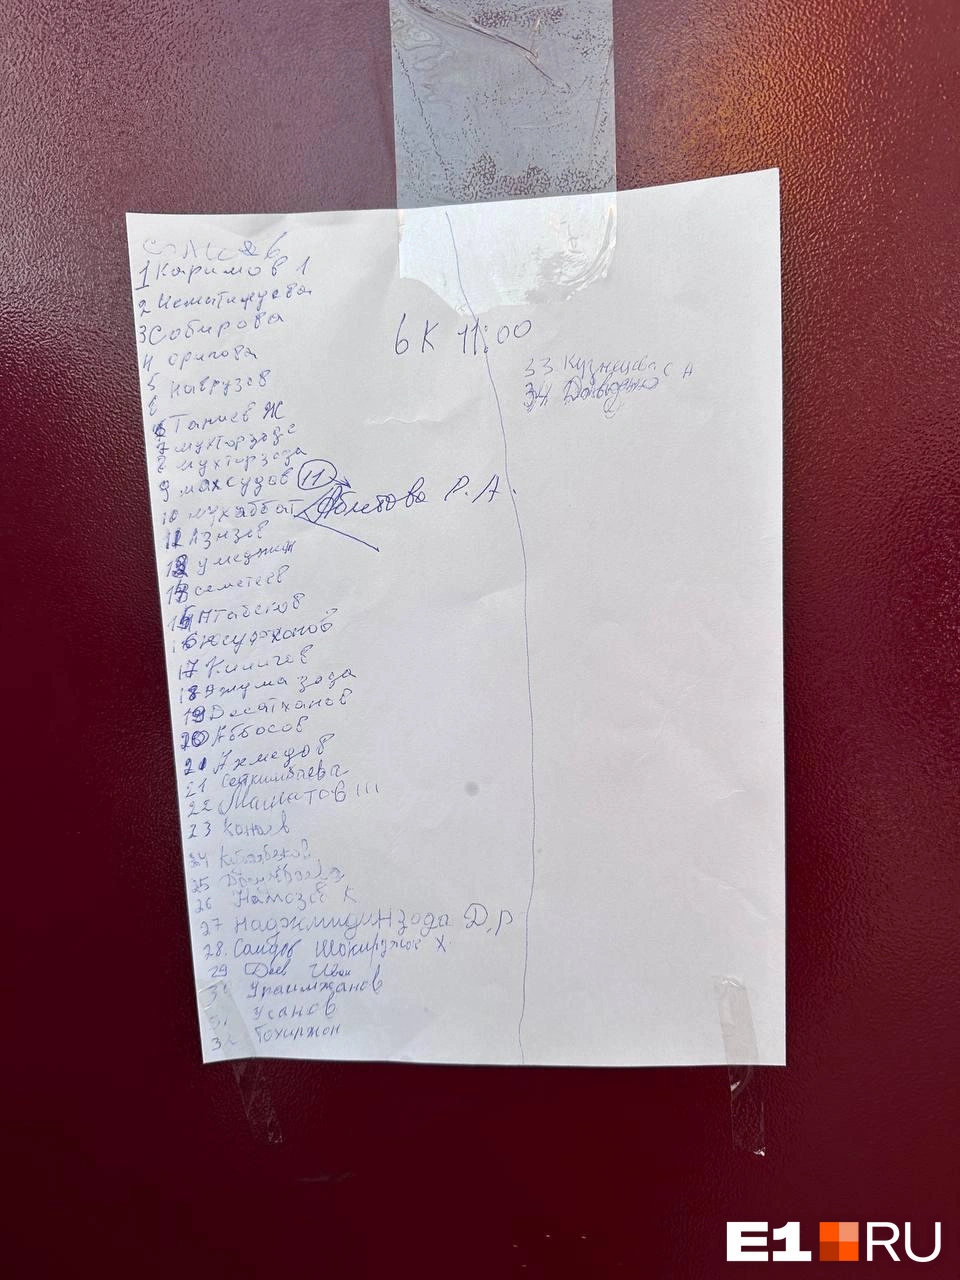 1 Каримов 1
2 Нематижусва
3 Собирова
4 орипова
5 Наврузов
6 Тапиев Ж
7 мухторзоде
8 мухторзода
9 махсудов
10 мухаббат
11
Аблетова Р. А.
12 Азизов
13 умеджон
14 семетеев
15 Атабеков
16 Юсуфханов
17 Киличев
18 Джума зода
19 Досатханов
20 Аббосов
20 Ахмедов
21 Сеткимбаева
22 Маматов III
23 Канаев
24
25
26 Намозов К
27 Наджмидинзода Д,р
28. Саидов Шокирджон Х.
29 Диев Иван
30 Ураимжанов
31 Усанов
32 Тохиржон
6 К 11:00
33 Кузнецова С А
34 Давыденко
E1.RU